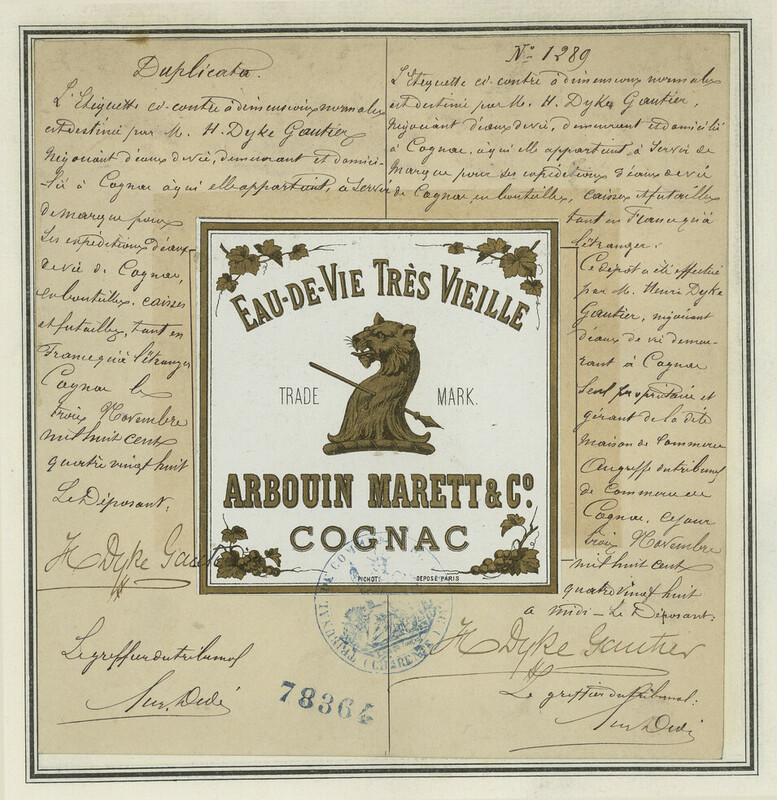 Duplicata.
L'Etiquette ci-contre à dimensions normales
est destiné par M. H. Dyke Gautier
Négociant d'eaux de vie, demeurant et domici-
-lié à Cognac à qui elle appartient, à servir
de marque pour
ses expéditions d'eaux
de vie de Cognac,
en bouteilles, caisses
et futailles, tant en
France qu'à l'étranger
Cognac le
trois Novembre
mil huit cent
quatre vingt huit
Le Déposant,
H Dyke Gautier
Le greffier du tribunal
No 1289
L'Etiquette ci-contre à dimensions normales
est destiné par M. H. Dyke Gautier,
Négociant d'eaux de vie, demeurant et domicilié
à Cognac, à qui elle appartient, à servir de
Marque pour ses expéditions d'eaux de vie
de Cognac en bouteilles, caisses et futailles
tant en France qu'à
l'étranger.
Ce dépôt a été effectué
par M. Henri Dyke
Gautier, négociant
d'eaux de vie demeu-
rant à Cognac
Seul propriétaire et
gérant de la dite
Maison de Commerce
Au greffe du tribunal
de Commerce de
Cognac, ce jour
trois Novembre
mil huit cent
quatre vingt huit
à midi - Le Déposant:
H Dyke Gautier
Le greffier du tribunal:
EAU-DE-VIE TRÈS VIEILLE
TRADE MARK.
ARBOUIN MARETT & Co.
COGNAC
PICHOT DÉPOSÉ PARIS
TRIBUNAL DE COMMERCE
(CHARENTE)
78364